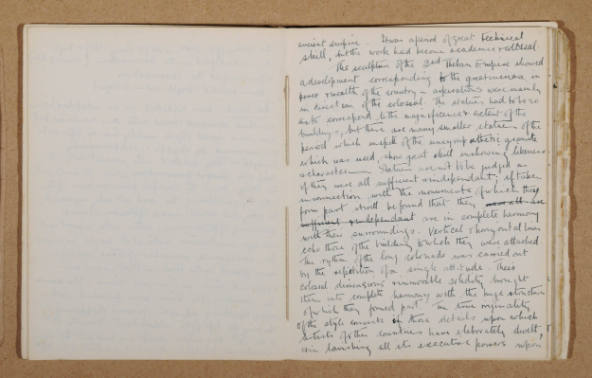 ancient empire. It was a period of great technical
skill, but the work had become academic & artificial
The sculpture of the 2nd Theban Empire showed
a development corresponding to the great increase in
power & wealth of the country – aspirations were mainly
in direction of the colossal. The statues had to be so
as to correspond to the magnificence & extent of the
buildings, but there are many smaller statues of the
period which in spite of the unsympathetic granite
which was used, show great skill in showing likeness
& character. Statues are not to be judged as
if they were all sufficient & independant; if taken
in connection with the monuments of which they
form part it will be found that they are all are
sufficient & independant are in complete harmony
with their surroundings. Vertical & horizontal lines
echo those of the building to which they were attached
The rythm of the long colonade was carried out
by the repetition of a single attitude. Their
colossal dimensions & immovable solidity brought
them into complete harmony with the huge structure
of which they formed part. The true originality
of the style consists in those details upon which
artists of other countries have elaborately dwelt,
in lavishing all its executive powers upon